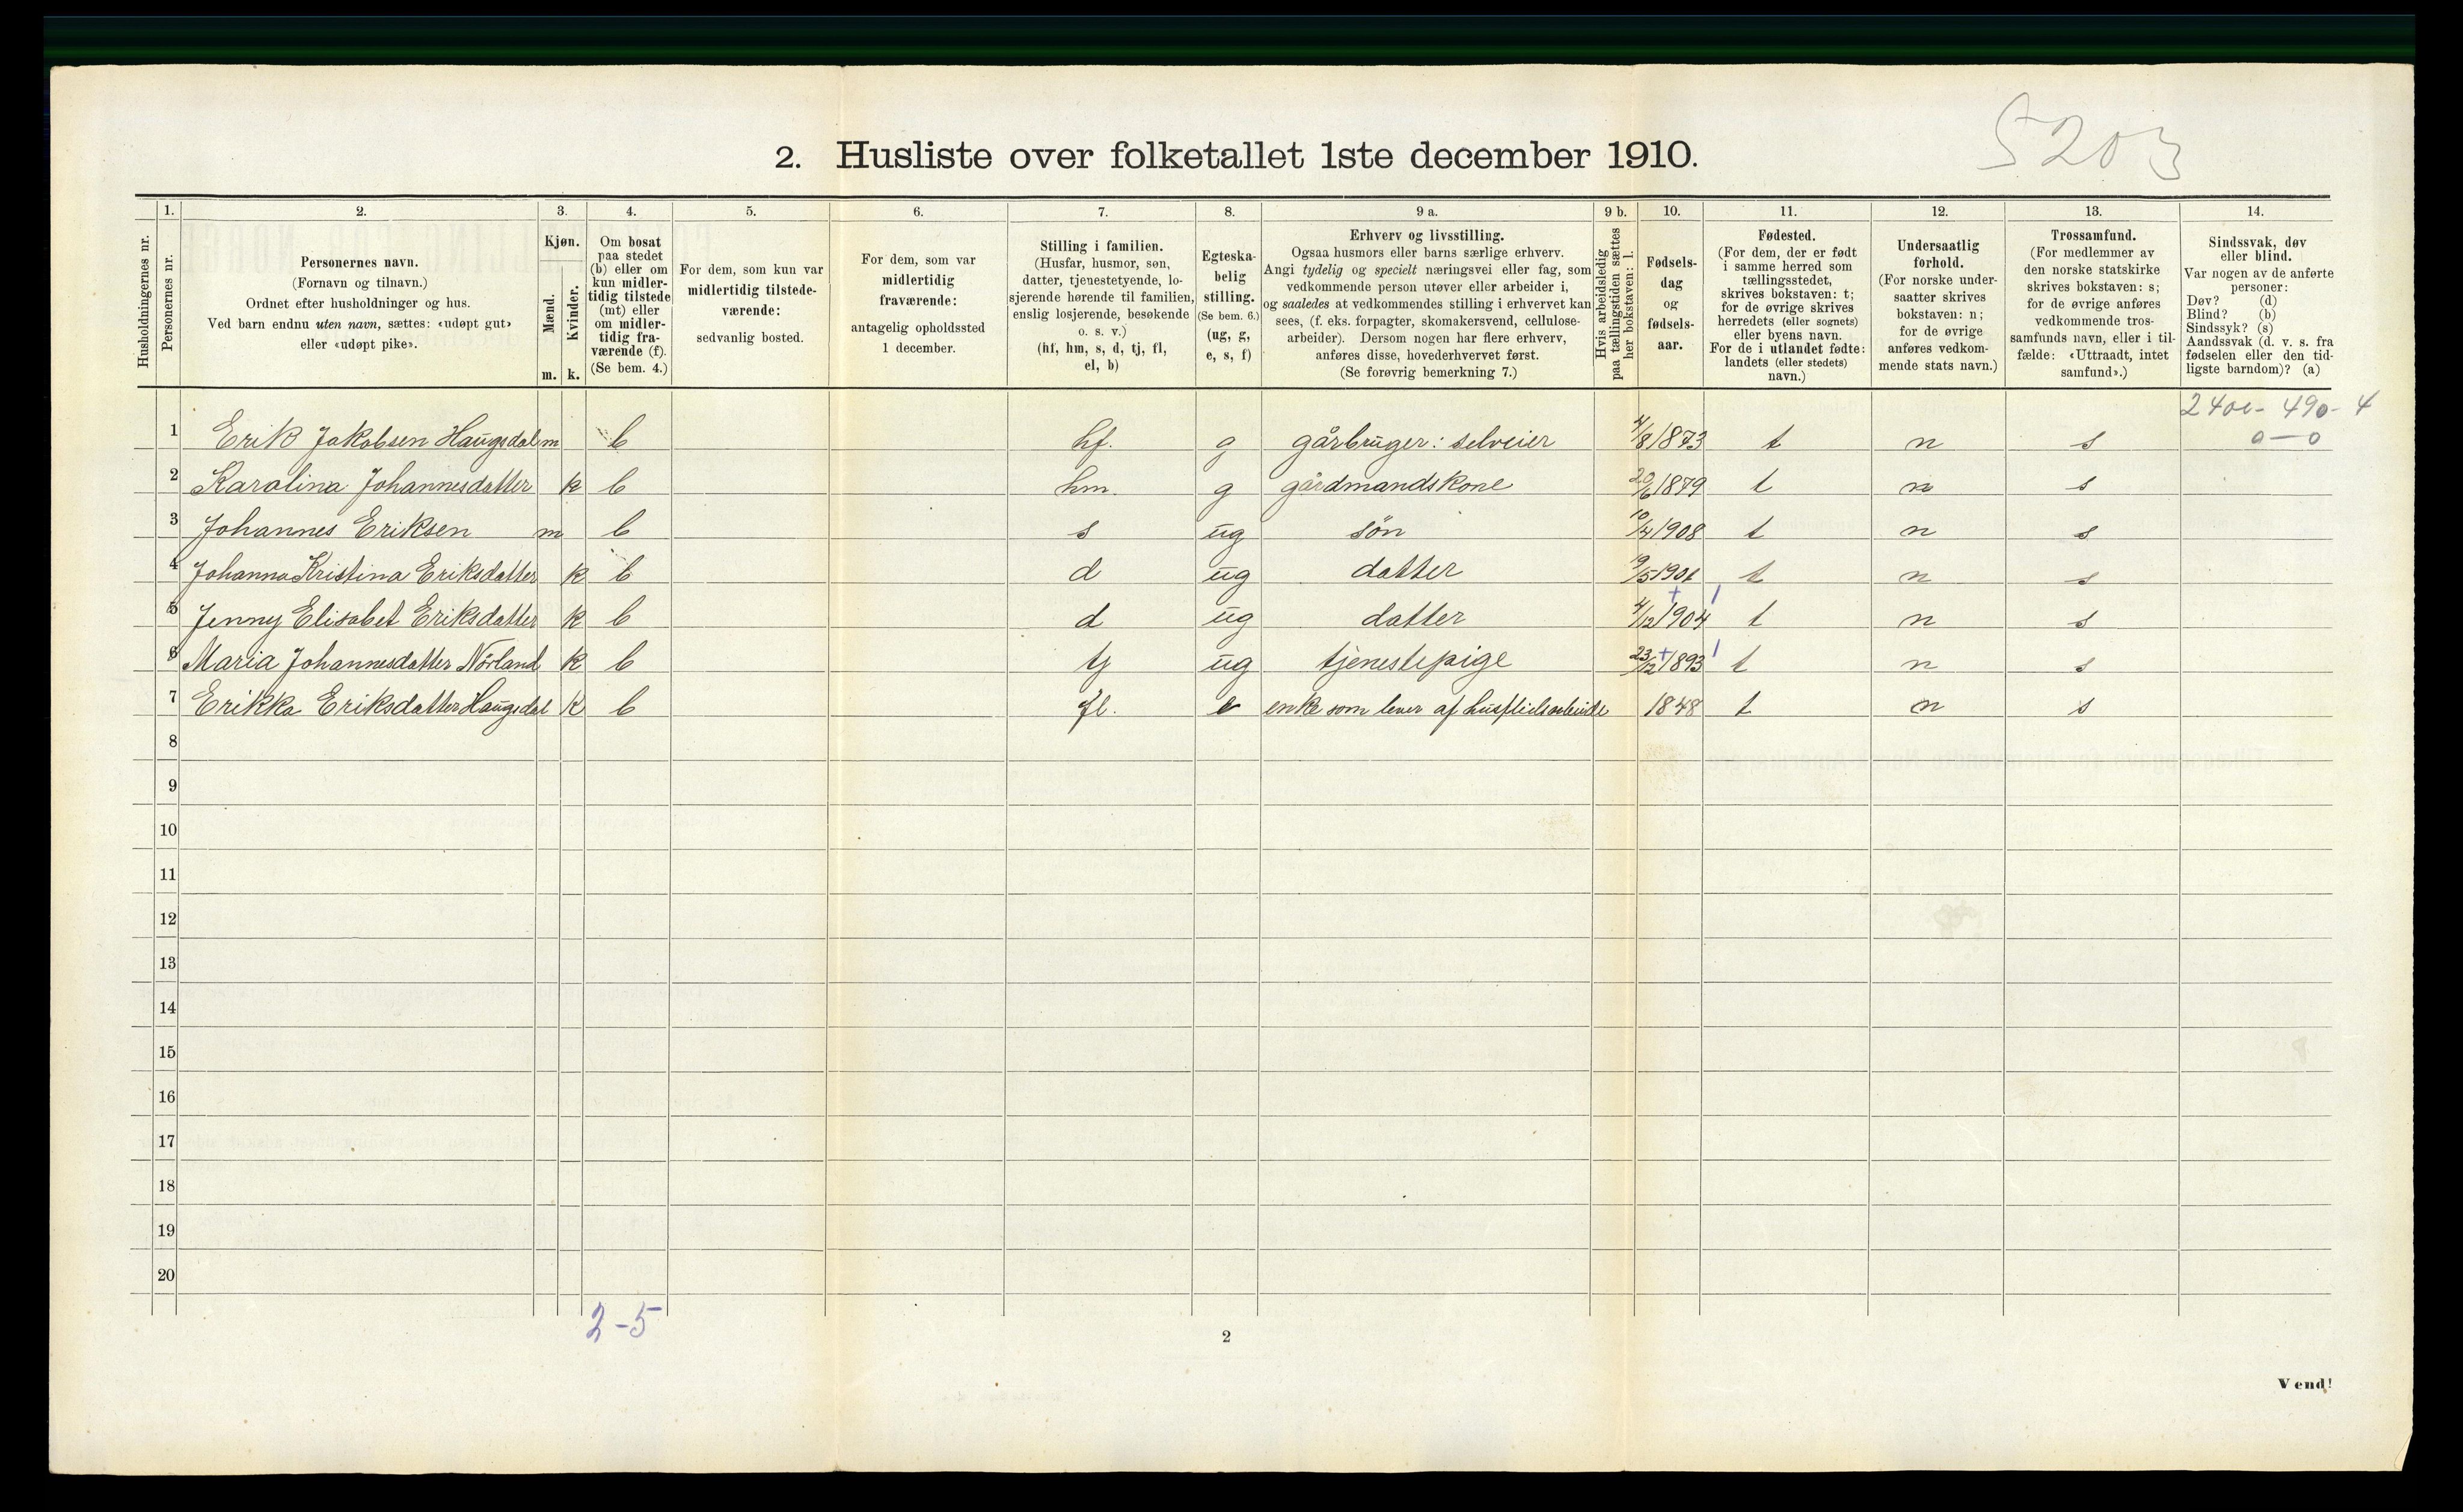 5203
2. Husliste over folketallet 1ste december 1910.
Husholdningernes nr.
1. Personernes nr.
2. Personernes navn.
(Fornavn og tilnavn.)
Ordnet efter husholdninger og hus.
Ved barn endnu uten navn, sættes: «udøpt gut»
eller «udøpt pike».
3. Kjøn.
Mænd. m.
Kvinder. k.
4. Om bosat
paa stedet
(b) eller om
kun midler-
tidig tilstede
(mt) eller
om midler-
tidig fra-
værende (f).
(Se bem. 4.)
5. For dem, som kun var
midlertidig tilstede-
værende:
sedvanlig bosted.
6. For dem, som var
midlertidig
fraværende:
antagelig opholdssted
1 december.
7. Stilling i familien.
(Husfar, husmor, søn,
datter, tjenestetyende, lo-
sjerende hørende til familien,
enslig losjerende, besøkende
o. s. v.)
(hf, hm, s, d, tj, fl,
el, b)
8. Egteska-
belig
stilling.
(Se bem. 6.)
(ug, g,
e, s, f)
9 a. Erhverv og livsstilling.
Ogsaa husmors eller barns særlige erhverv.
Angi tydelig og specielt næringsvei eller fag, som
vedkommende person utøver eller arbeider i,
og saaledes at vedkommendes stilling i erhvervet kan
sees, (f. eks. forpagter, skomakersvend, cellulose-
arbeider). Dersom nogen har flere erhverv,
anføres disse, hovederhvervet først.
(Se forøvrig bemerkning 7.)
9 b. Hvis arbeidsledig
paa tællingstiden sættes
her bokstaven: l.
10. Fødsels-
dag
og
fødsels-
aar.
11. Fødested.
(For dem, der er født
i samme herred som
tællingsstedet,
skrives bokstaven: t;
for de øvrige skrives
herredets (eller sognets)
eller byens navn.
For de i utlandet fødte:
landets (eller stedets)
navn.)
12. Undersaatlig
forhold.
(For norske under-
saatter skrives
bokstaven: n;
for de øvrige
anføres vedkom-
mende stats navn.)
13. Trossamfund.
(For medlemmer av
den norske statskirke
skrives bokstaven: s;
for de øvrige anføres
vedkommende tros-
samfunds navn, eller i til-
fælde: «Uttraadt, intet
samfund».)
14. Sindssvak, døv
eller blind.
Var nogen av de anførte
personer:
Døv? (d)
Blind? (b)
Sindssyk? (s)
Aandssvak (d. v. s. fra
fødselen eller den tid-
ligste barndom)? (a)
2400- 490- 4
0—0
1 Erik Jakobsen Haugsdal m b hf. g gårbruger: selveier 4/8 1873 t n s
2 Karolina Johannesdatter k b hm. g gårdmandskone 20/6 1879 t n s
3 Johannes Eriksen m b s ug sön 10/4 1908 t n s
4 Johanna Kristina Eriksdatter k b d ug datter 19/5 1901 t n s
5 Jenny Elisabet Eriksdatter k b d ug datter 4/12 1904 t n s
6 Maria Johannesdatter Nörland k b tj ug tjenestepige 23/12 1893 t n s
7 Erikka Eriksdatter Haugsdal k b fl. e enke som lever af husflidsarbeide 1848 t n s
8
9
10
11
12
13
14
15
16
17
18
19
20
2-5
2
Vend!